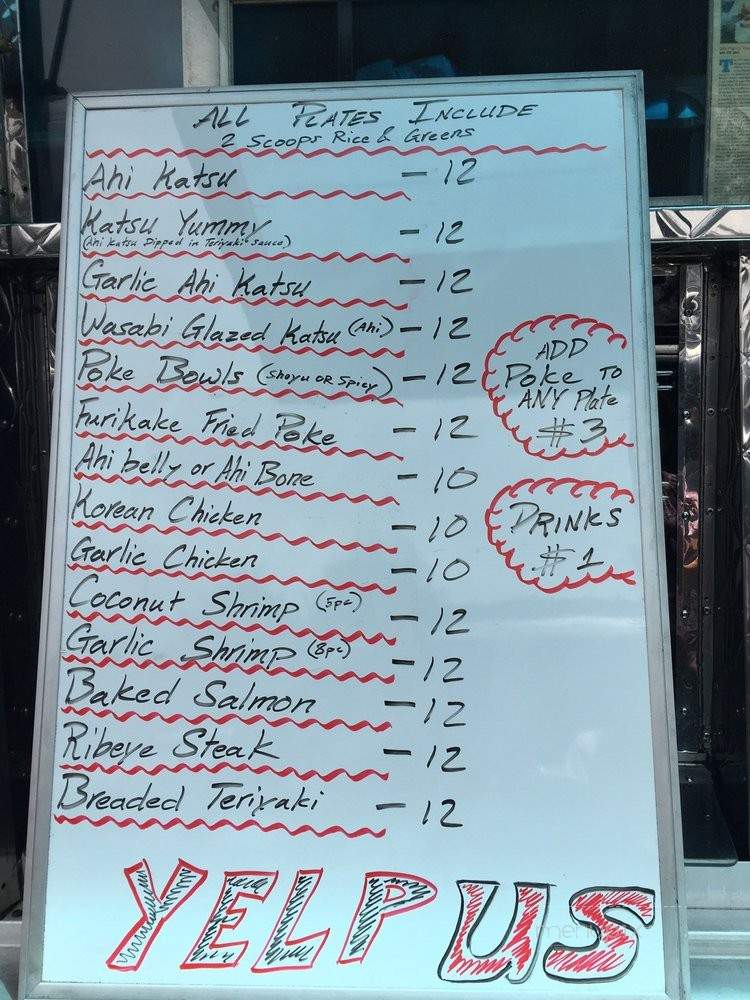 ALL PLATES INCLUDE
2 Scoops Rice & Greens
Ahi Katsu - 12
Katsu Yummy - 12
(Ahi Katsu Dipped in Teriyaki Sauce)
Garlic Ahi Katsu - 12
Wasabi Glazed Katsu (Ahi) - 12
Poke Bowls (Shoyu OR Spicy) - 12
Furikake Fried Poke - 12
Ahi belly or Ahi Bone - 10
Korean Chicken - 10
Garlic Chicken - 10
Coconut Shrimp (5pc) - 12
Garlic Shrimp (8pc) - 12
Baked Salmon - 12
Ribeye Steak - 12
Breaded Teriyaki - 12
ADD
Poke TO
ANY Plate
#3
DRINKS
#1
YELP US